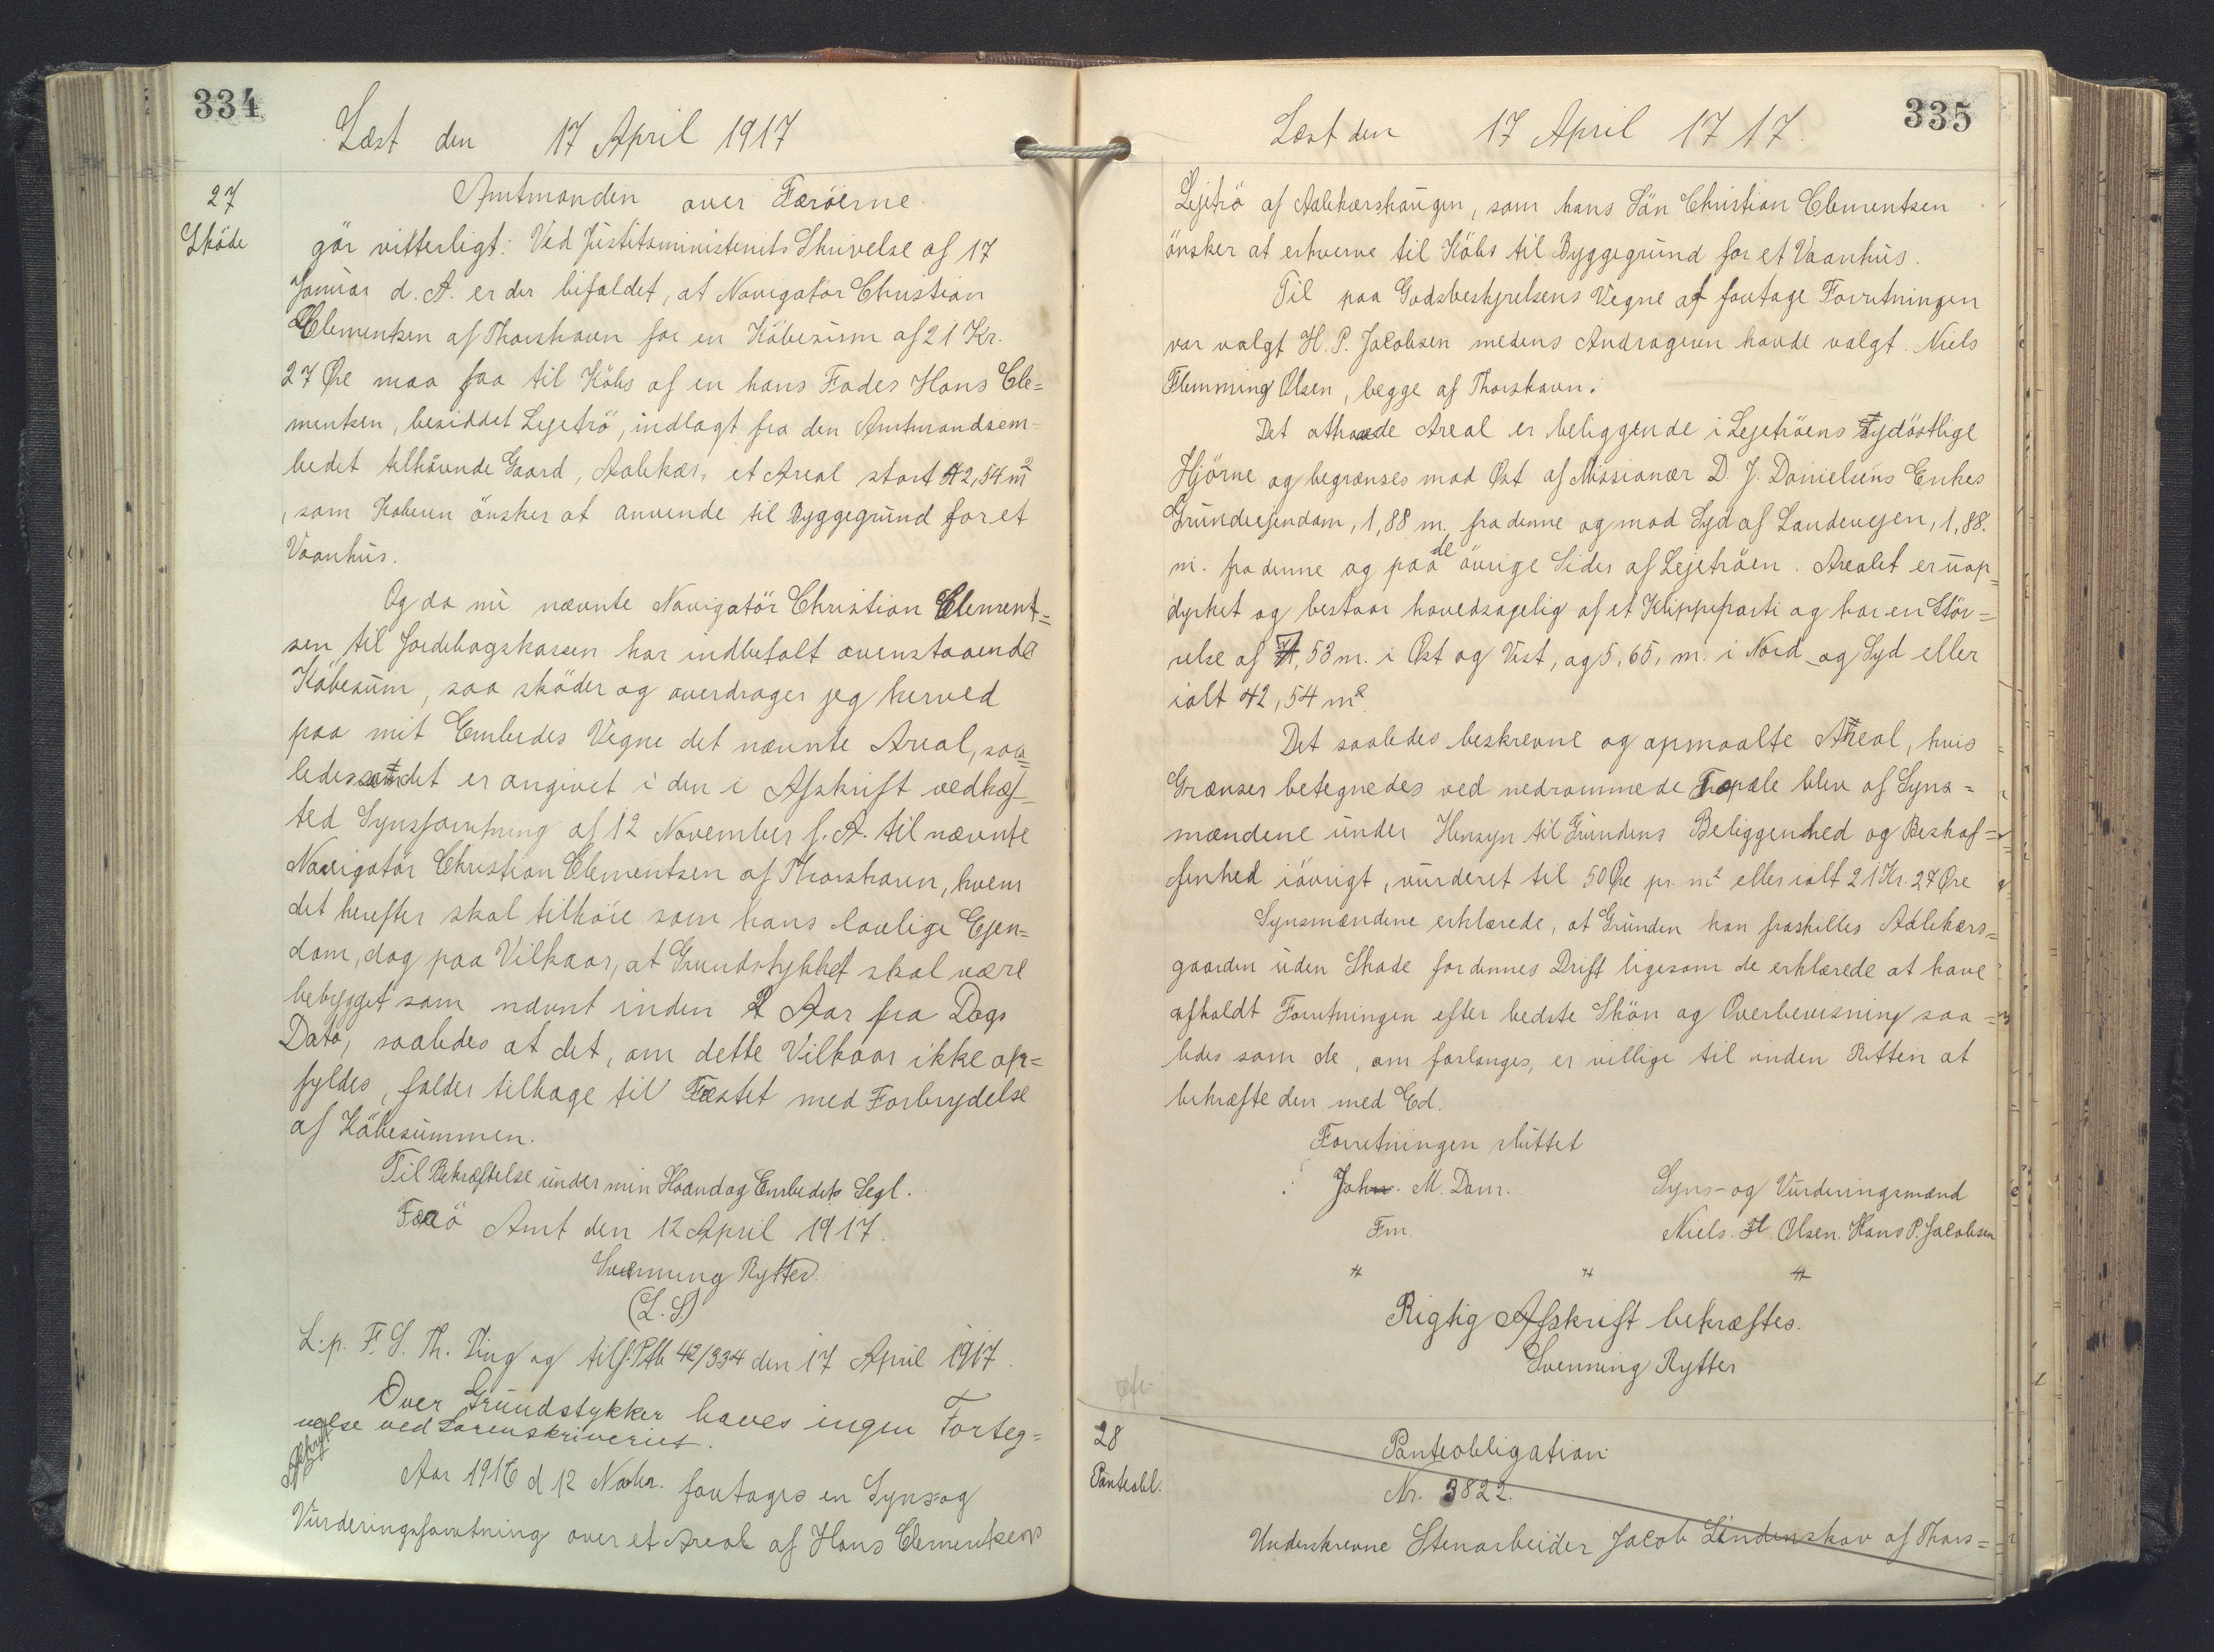 334
Læst den 17 April 1917
27
Sköde
Amtmanden over Færöerne.
gör vitterligt: Ved Justitsministeriets Skrivelse af 17
Januar d. A. er der bifaldet, at Navigatör Christian
Clementsen af Thorshavn for en Köbesum af 21 Kr.
27 Øre maa faa til Köbs af en hans Fader Hans Cle=
mentsen, besiddet Lejetrö, indlagt fra den Amtmandsem=
bedet tilhörende Gaard, Aalekær, et Areal stort 42,54 m2
, som Köberen önsker at anvende til Byggegrund for et
Vaanhus.
Og da nu nævnte Navigatör Christian Clement=
sen til Jordebogskassen har indbetalt ovenstaaende
Köbesum, saa sköder og overdrager jeg herved
paa mit Embedes Vegne det nævnte Areal, saa=
ledes som det er angivet i den i Afskrift vedhæf=
ted Synsforretning af 12 November f. A. til nævnte
Navigatör Christian Clementsen af Thorshavn, hvem
det herefter skal tilhöre som hans lovlige Ejen=
dom, dog paa Vilkaar, at Grundstykket skal være
bebygget som nævnt inden 2 Aar fra Dags
Dato, saaledes at det, om dette Vilkaar ikke op=
fyldes, falder tilbage til Fæstet med Forbrydelse
af Köbesummen.
Til Bekræftelse under min Haand og Embedets Segl.
Færö Amt den 12 April 1917.
Svenning Rytter
(L. S.)
L. p. F. S. Th. Ting og tilf. Ptb 42/334 den 17 April 1917.
Over Grundstykker haves ingen Forteg=
nelse ved Sorenskriveriet.
Afskrift
Aar 1916 d 12 Novbr. foretages en Syns=og
Vurderingsforretning over et Areal af Hans Clementsens
335
Læst den 17 April 17 17.
Lejetrö af Aalekærshaugen, som hans Sön Christian Clementsen
önsker at erhverve til Köbs til Byggegrund for et Vaanhus.
Til paa Godsbestyrelsens Vegne at foretage Forretningen
var valgt H. P. Jacobsen medens Andrageren havde valgt Niels
Flemming Olsen, begge af Thorshavn.
Det attraaede Areal er beliggende i Lejetröens sydöstlige
Hjörne og begrænses mod Øst af Missionær D. J. Danielsens Enkes
Grundeejendom, 1,88 m. fra denne og mod Syd af Landevejen, 1,88.
m. fra denne og paa de övrige Sider af Lejetröen. Arealet er uop=
dyrket og bestaar hovedsagelig af et Klippeparti og har en Stör=
relse af 7,53 m. i Øst og Vest, og 5,65, m. i Nord og Syd eller
ialt 42,54 m2.
Det saaledes beskrevne og opmaalte Areal, hvis
Grænser betegnedes ved nedrammede Træpæle blev af Syns=
mændene under Hensyn til Grundens Beliggenhed og Beskaf=
fenhed iövrigt, vurderet til 50 Øre pr. m2 eller ialt 21 Kr. 27 Øre
Synsmændene erklærede, at Grunden kan fraskilles Aalekærs=
gaarden uden Skade for dennes Drift ligesom de erklærede at have
afholdt Forretningen efter bedste Skön og Overbevisning saa=
ledes som de, om forlanges, er villige til inden Retten at
bekræfte den med Ed.
Forretningen sluttet
John. M. Dam. Syns- og Vurderingsmænd
Fm. Niels. Fl. Olsen. Hans P. Jacobsen
Rigtig Afskrift bekræftes.
Svenning Rytter
28
Panteobl.
Panteobligation
Nr. 3822.
Underskrevne Stenarbeider Jacob Lindenskov af Thors=